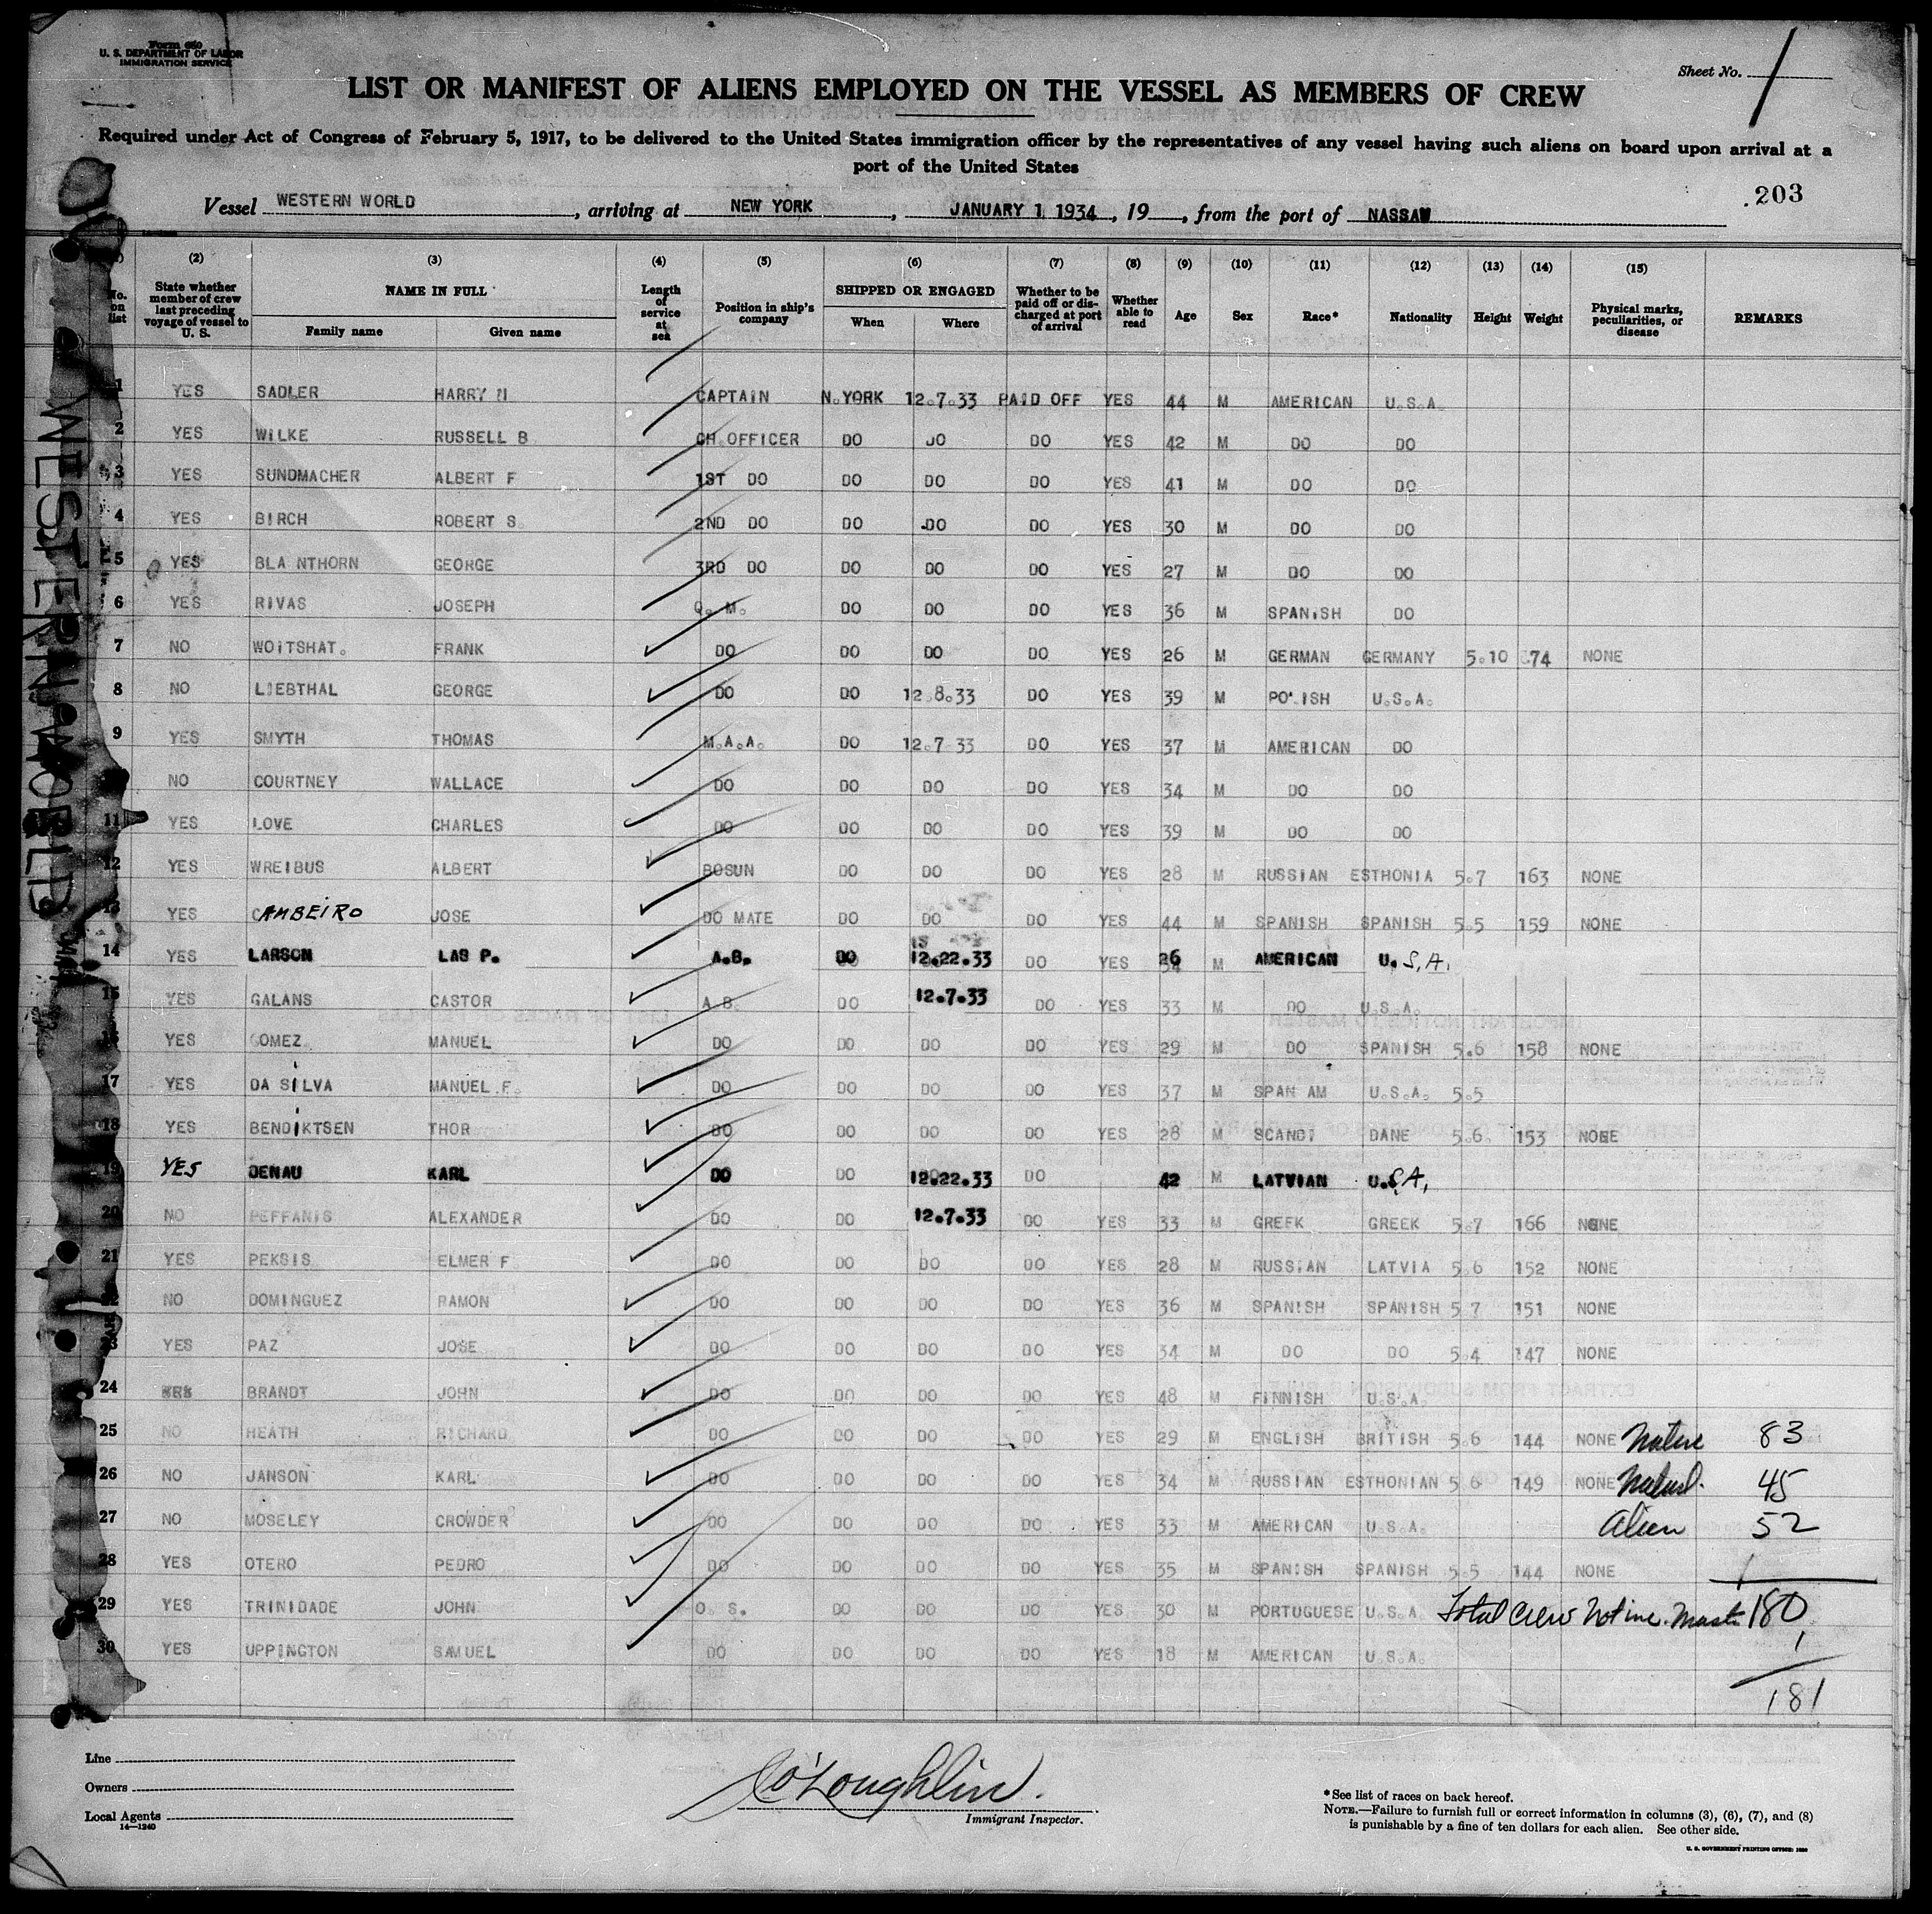 Form 680
U. S. DEPARTMENT OF LABOR
IMMIGRATION SERVICE
Sheet No. 1
LIST OR MANIFEST OF ALIENS EMPLOYED ON THE VESSEL AS MEMBERS OF CREW
Required under Act of Congress of February 5, 1917, to be delivered to the United States immigration officer by the representatives of any vessel having such aliens on board upon arrival at a
port of the United States
203
Vessel WESTERN WORLD, arriving at NEW YORK, JANUARY 1 1934, 19, from the port of NASSAU
(2) (3) (4) (5) (6) (7) (8) (9) (10) (11) (12) (13) (14) (15)
No. on list State whether member of crew last preceding voyage of vessel to U. S. NAME IN FULL Family name Given name Length of service at sea Position in ship's company SHIPPED OR ENGAGED When Where Whether to be paid off or discharged at port of arrival Whether able to read Age Sex Race* Nationality Height Weight Physical marks, peculiarities, or disease REMARKS
1 YES SADLER HARRY N CAPTAIN N.YORK 12.7.33 PAID OFF YES 44 M AMERICAN U.S.A.
2 YES WILKE RUSSELL B CH.OFFICER DO DO DO YES 42 M DO DO
3 YES SUNDMACHER ALBERT F 1ST DO DO DO DO YES 41 M DO DO
4 YES BIRCH ROBERT S. 2ND DO DO DO DO YES 30 M DO DO
5 YES BLA NTHORN GEORGE 3RD DO DO DO DO YES 27 M DO DO
6 YES RIVAS JOSEPH Q. M. DO DO DO YES 36 M SPANISH DO
7 NO WOITSHAT. FRANK DO DO DO DO YES 26 M GERMAN GERMANY 5.10 74 NONE
8 NO LIEBTHAL GEORGE DO DO 12.8.33 DO YES 39 M POLISH U.S.A.
9 YES SMYTH THOMAS M.A.A. DO 12.7 33 DO YES 37 M AMERICAN DO
NO COURTNEY WALLACE DO DO DO DO YES 34 M DO DO
11 YES LOVE CHARLES DO DO DO DO YES 39 M DO DO
12 YES WREIBUS ALBERT BOSUN DO DO DO YES 28 M RUSSIAN ESTHONIA 5.7 163 NONE
13 YES CAMBEIRO JOSE DO MATE DO DO DO YES 44 M SPANISH SPANISH 5.5 159 NONE
14 YES LARSON LAS P. A.B. DO 12.22.33 DO YES 26 M AMERICAN U.S.A.
15 YES GALANS CASTOR A.B. DO 12.7.33 DO YES 33 M DO U.S.A.
16 YES GOMEZ MANUEL DO DO DO DO YES 29 M DO SPANISH 5.6 158 NONE
17 YES DA SILVA MANUEL F. DO DO DO DO YES 37 M SPAN AM U.S.A. 5.5
18 YES BENDIKTSEN THOR DO DO DO DO YES 28 M SCANDI DANE 5.6. 153 NONE
19 YES DENAU KARL DO DO 12.22.33 DO 42 M LATVIAN U.S.A.
20 NO PEFFANIS ALEXANDER DO DO 12.7.33 DO YES 33 M GREEK GREEK 5.7 166 NONE
21 YES PEKSIS ELMER F DO DO DO DO YES 28 M RUSSIAN LATVIA 5.6 152 NONE
NO DOMINGUEZ RAMON DO DO DO DO YES 36 M SPANISH SPANISH 5 7 151 NONE
YES PAZ JOSE DO DO DO DO YES 34 M DO DO 5.4 147 NONE
24 YES BRANDT JOHN DO DO DO DO YES 48 M FINNISH U.S.A.
25 NO HEATH RICHARD DO DO DO DO YES 29 M ENGLISH BRITISH 5.6 144 NONE Native 83
26 NO JANSON KARL DO DO DO DO YES 34 M RUSSIAN ESTHONIAN 5 6 149 NONE Natural. 45
27 NO MOSELEY CROWDER DO DO DO DO YES 33 M AMERICAN U.S.A. Alien 52
28 YES OTERO PEDRO DO DO DO DO YES 35 M SPANISH SPANISH 5.5 144 NONE
29 YES TRINIDADE JOHN O. S. DO DO DO YES 30 M PORTUGUESE U.S.A. Total Crew Not inc. Mast 180
30 YES UPPINGTON SAMUEL DO DO DO DO YES 18 M AMERICAN U.S.A. 1
181
Line
Owners
Local Agents
14—1240
O'Loughlin.
Immigrant Inspector.
* See list of races on back hereof.
NOTE.—Failure to furnish full or correct information in columns (3), (6), (7), and (8)
is punishable by a fine of ten dollars for each alien. See other side.
U. S. GOVERNMENT PRINTING OFFICE: 1930
WESTERN WORLD